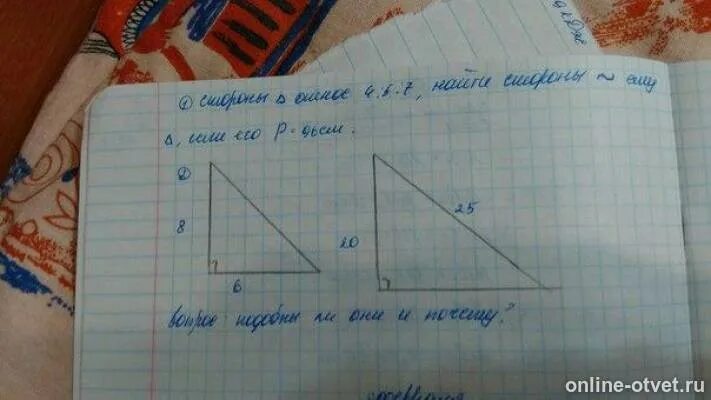 ① стороны △ относ 4:6:7, найти стороны ~ ему
△, если его P-
②
8
6
20
25
вопрос подобны ли они и почему?
online-otvet.ru